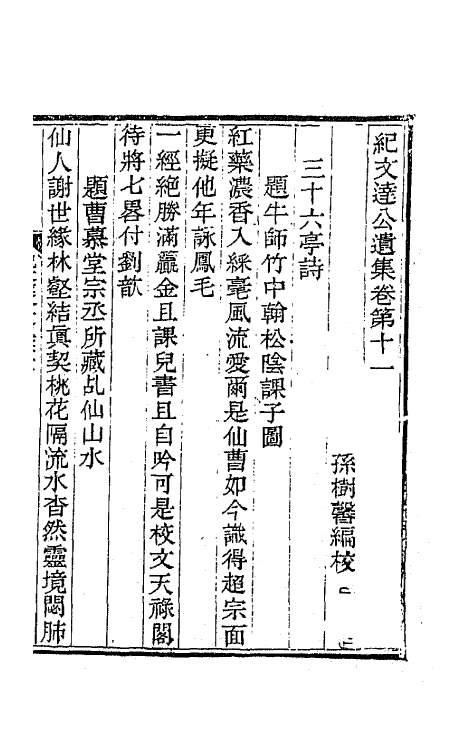 紀文達公遺集卷第十一
孫樹馨編校
三十六亭詩
題牛師竹中翰松陰課子圖
紅藥濃香入綵毫風流愛爾是仙曹如今識得超宗面
更擬他年詠鳳毛
一經絶勝滿籝金且課兒書且自吟可是校文天祿閣
待將七畧付劉歆
題曹慕堂宗丞所藏乩仙山水
仙人謝世緣林壑結眞契桃花隔流水杳然靈境閟肺